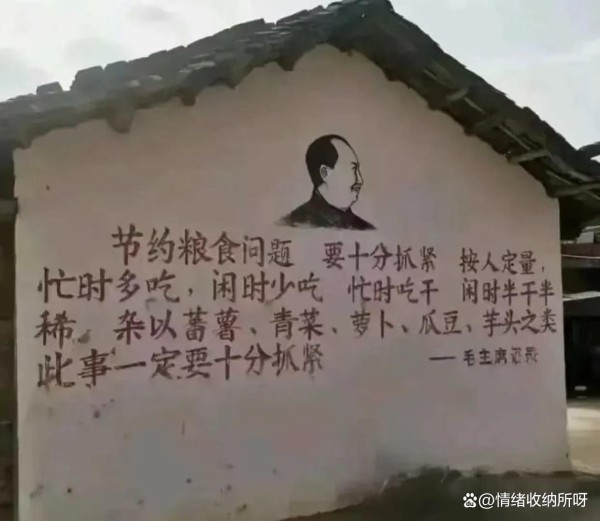 节约粮食问题 要十分抓紧 按人定量，
忙时多吃，闲时少吃 忙时吃干 闲时半干半
稀、杂以蕃薯、青菜、萝卜、瓜豆、芋头之类
此事一定要十分抓紧
——毛主席语录
头条 @情绪收纳所呀